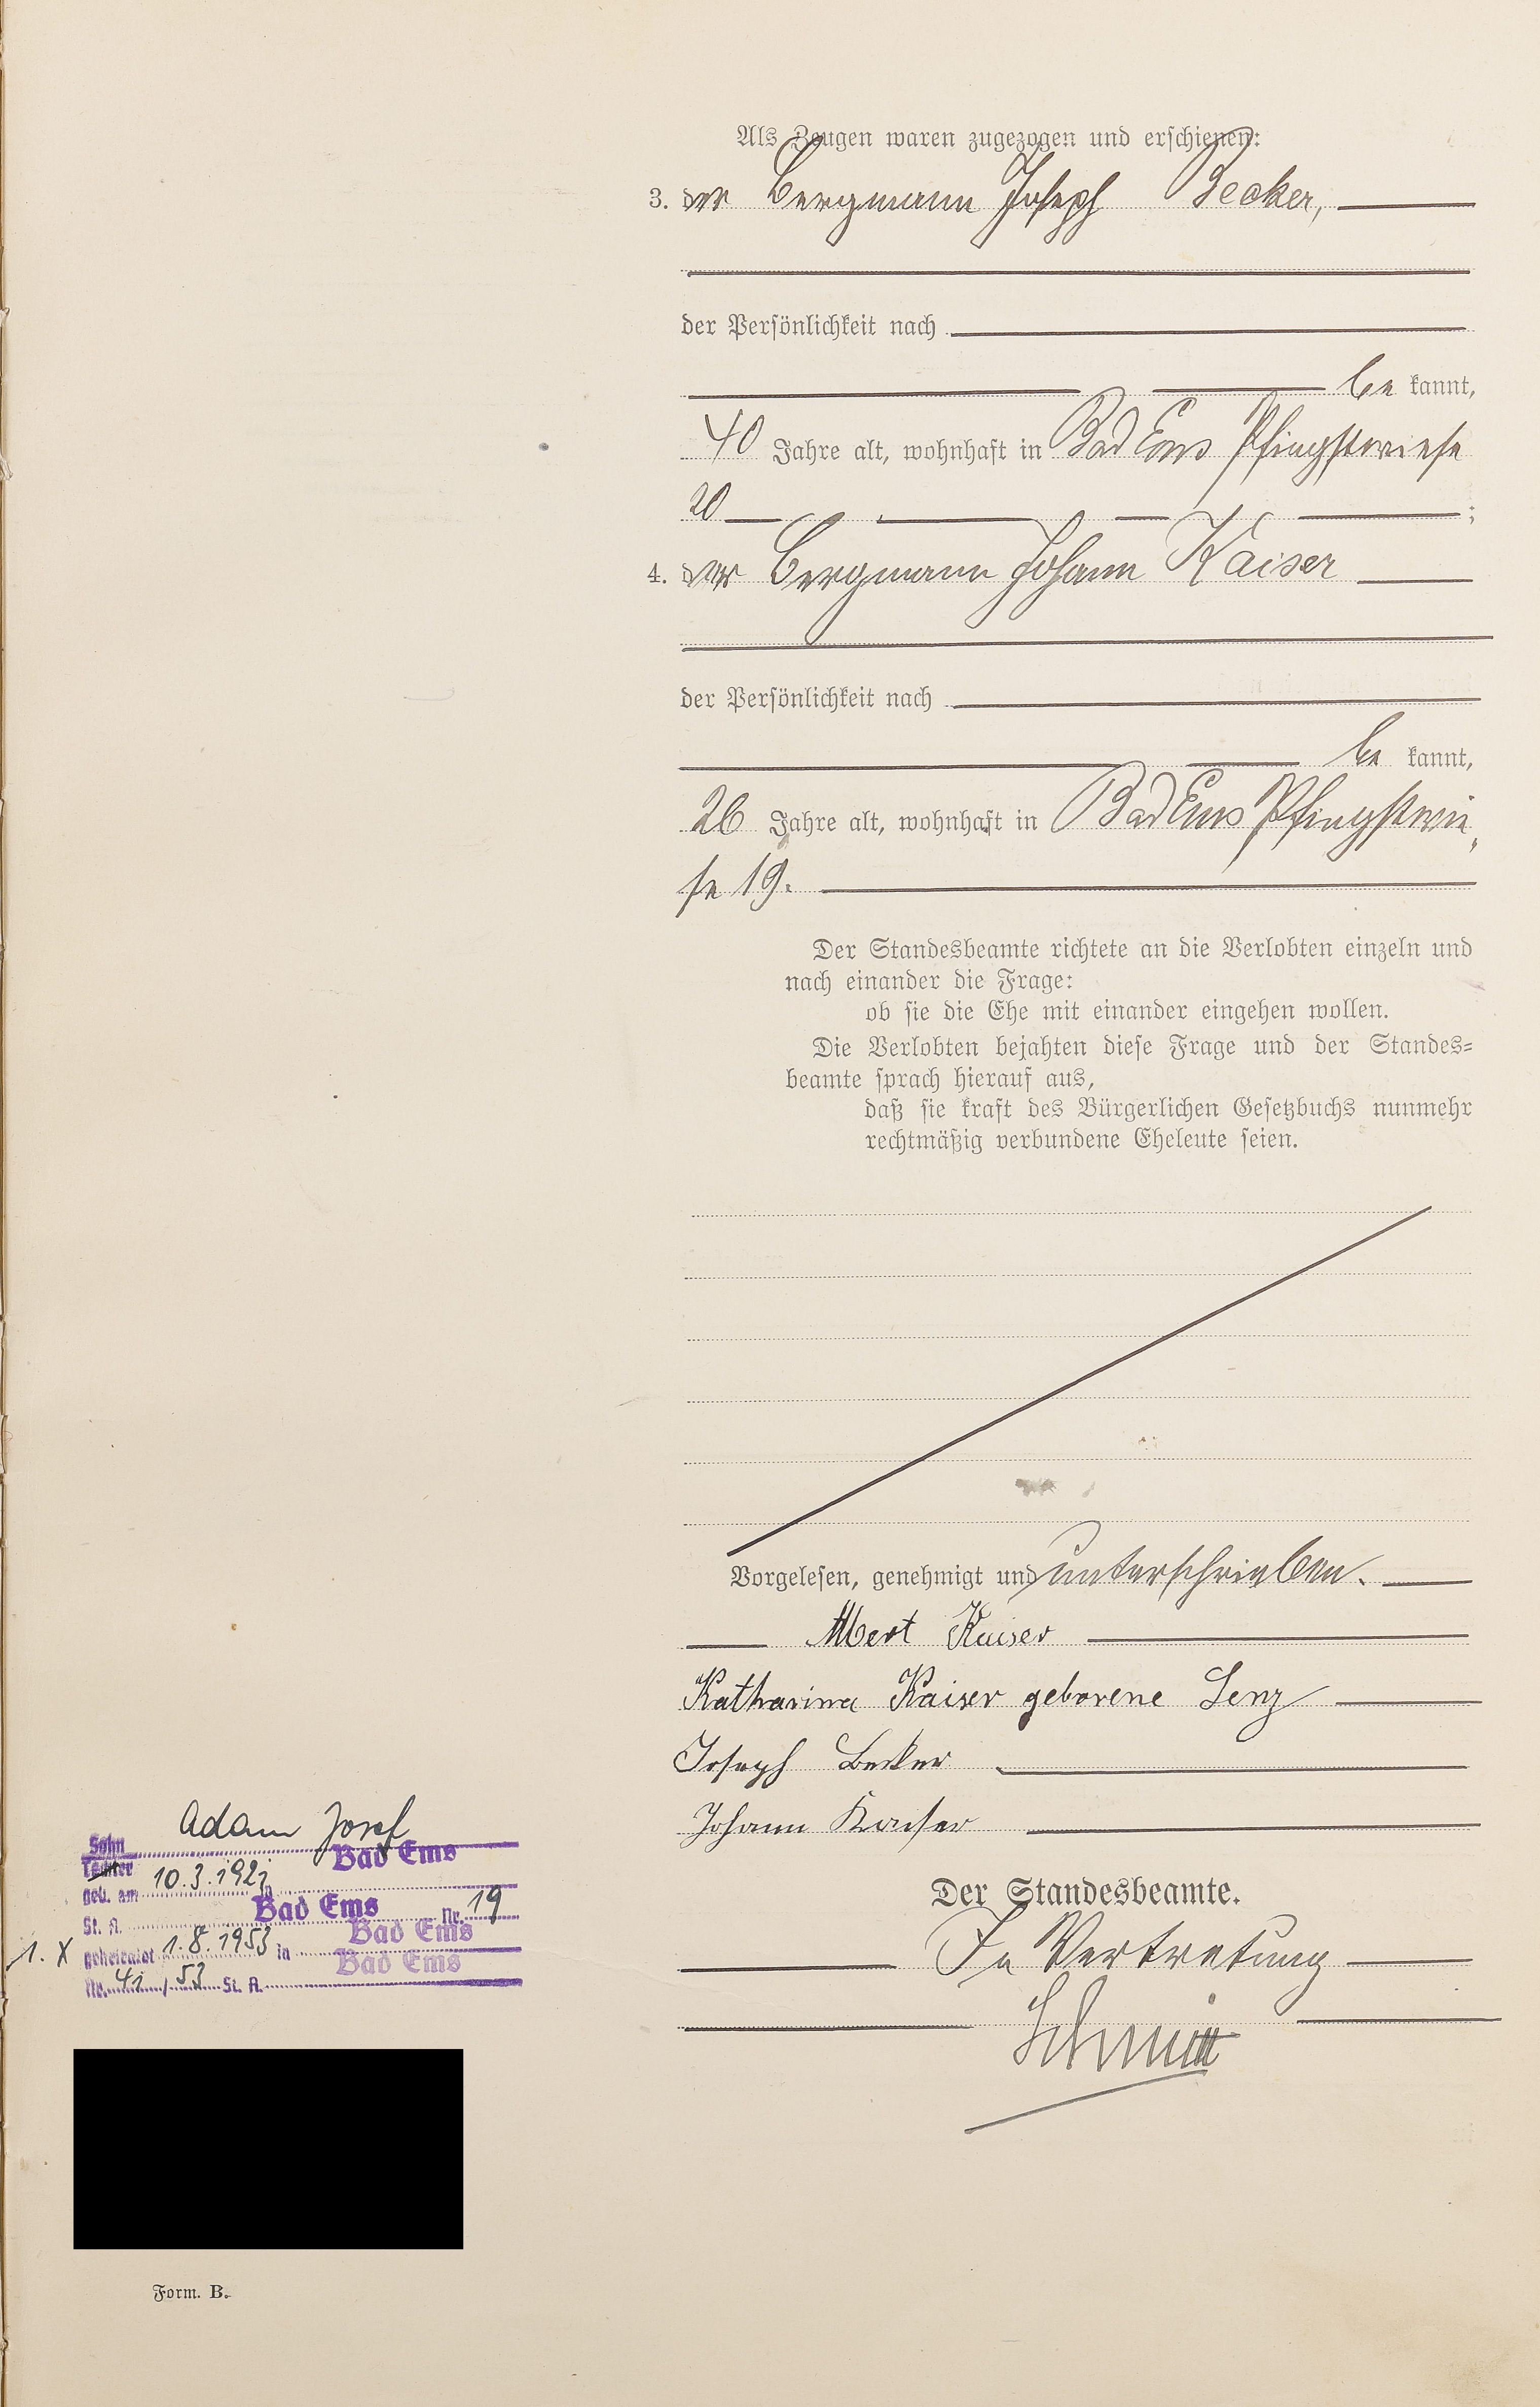 Als Zeugen waren zugezogen und erschienen:
3. der Bergmann Joseph Becker,
der Persönlichkeit nach
be kannt,
40 Jahre alt, wohnhaft in Bad Ems Pfingstwiese
20 ;
4. der Bergmann Johann Kaiser
der Persönlichkeit nach
be kannt,
26 Jahre alt, wohnhaft in Bad Ems Pfingstwie„
se 19.
Der Standesbeamte richtete an die Verlobten einzeln und
nach einander die Frage:
ob sie die Ehe mit einander eingehen wollen.
Die Verlobten bejahten diese Frage und der Standes=
beamte sprach hierauf aus,
daß sie kraft des Bürgerlichen Gesetzbuchs nunmehr
rechtmäßig verbundene Eheleute seien.
Vorgelesen, genehmigt und unterschrieben.
Albert Kaiser
Katharina Kaiser geborene Lenz
Joseph Becker
Johann Kaiser
Der Standesbeamte.
In Vertretung
Schmitt
Adam Josef
Sohn
Tochter Bad Ems
geb. am 10.3.192 in
St. A. Bad Ems Nr. 19
1. X geheiratet 1.8.1953 in Bad Ems
Nr. 41 / 53 St. A. Bad Ems
Form. B.